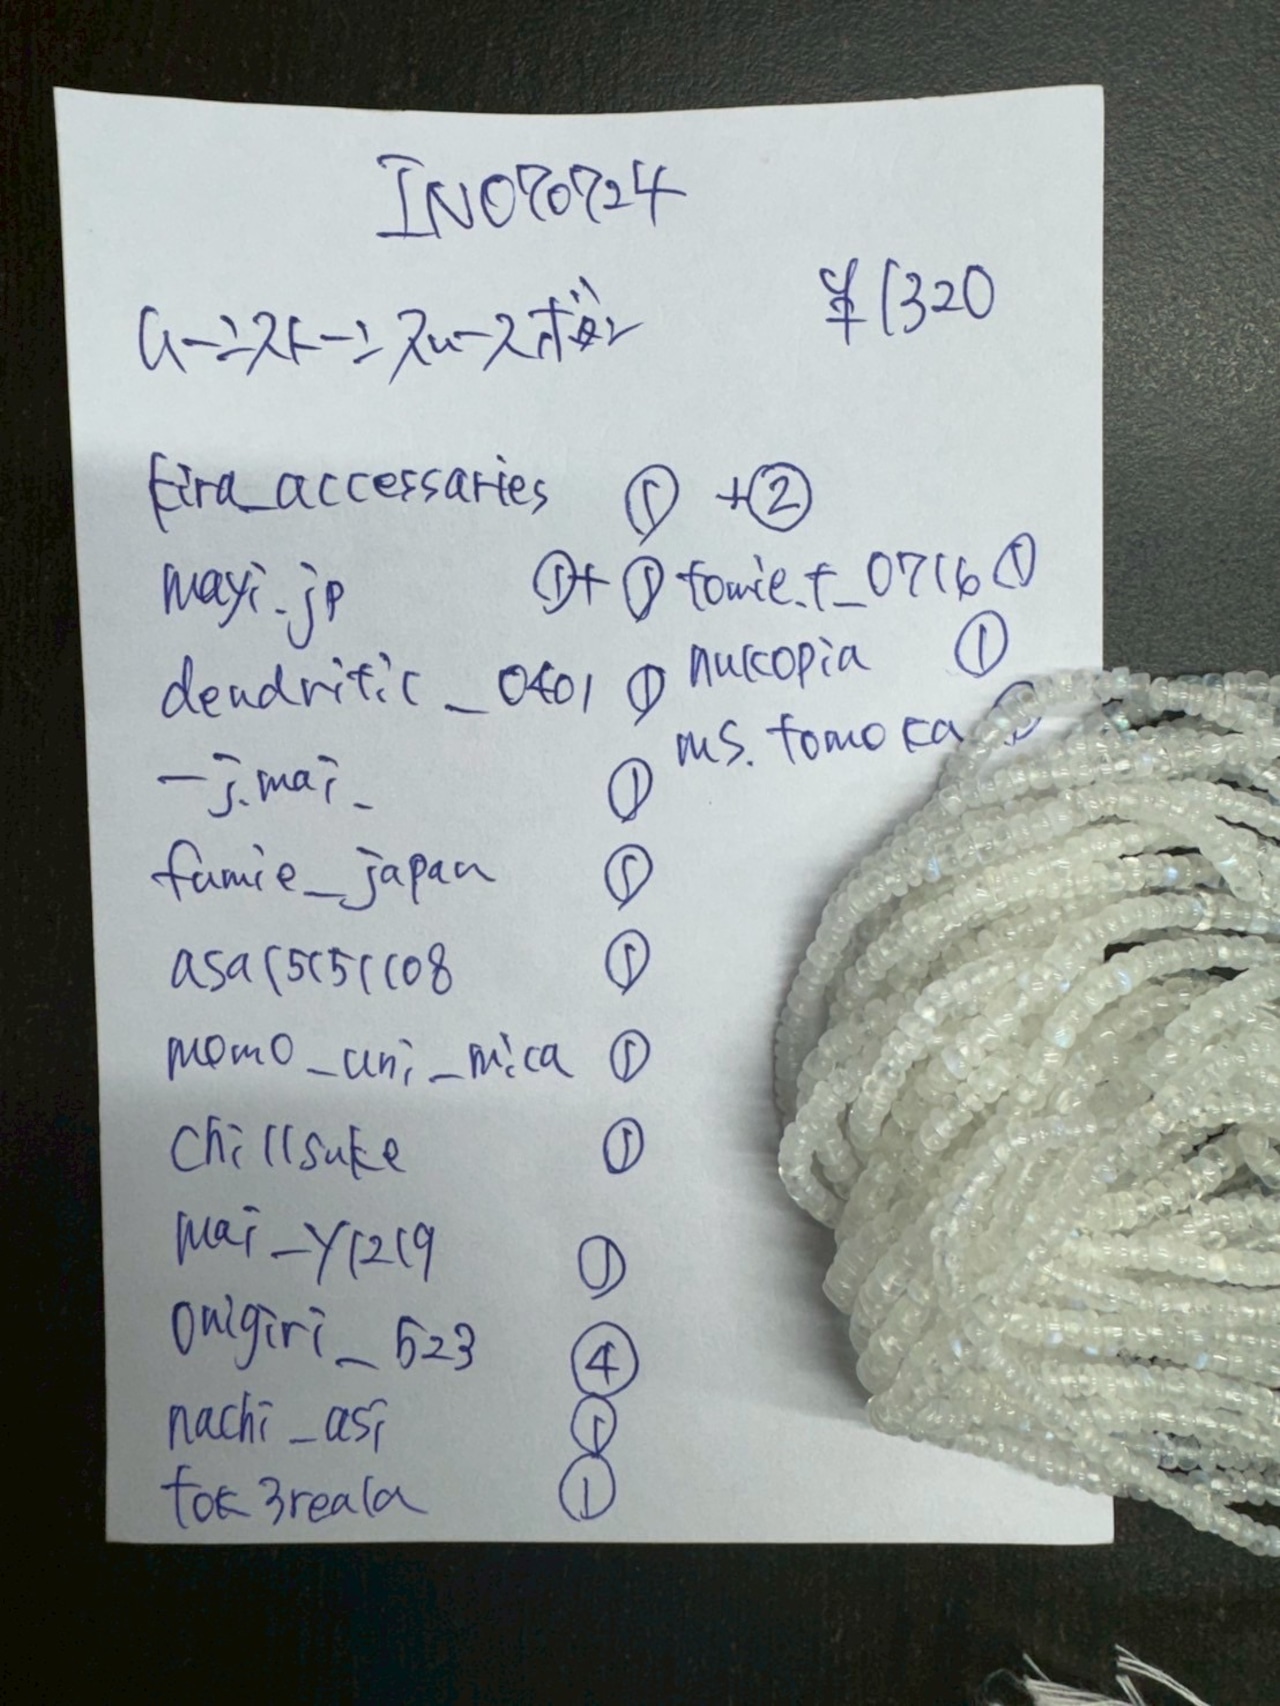 IN070724
ムーンストーンスムースボタン ¥1320
kira_accessaries ① +②
mayi_jp ①+① tomie.t_0716 ①
dendritic_0401 ① nukopia ①
_j.mai_ ① ms.tomoka
fumie_japan ①
asa15151108 ①
momo_uni_mica ①
chillsuke ①
mai_y1219 ①
onigiri_523 ④
nachi_asi ①
tok3reala ①